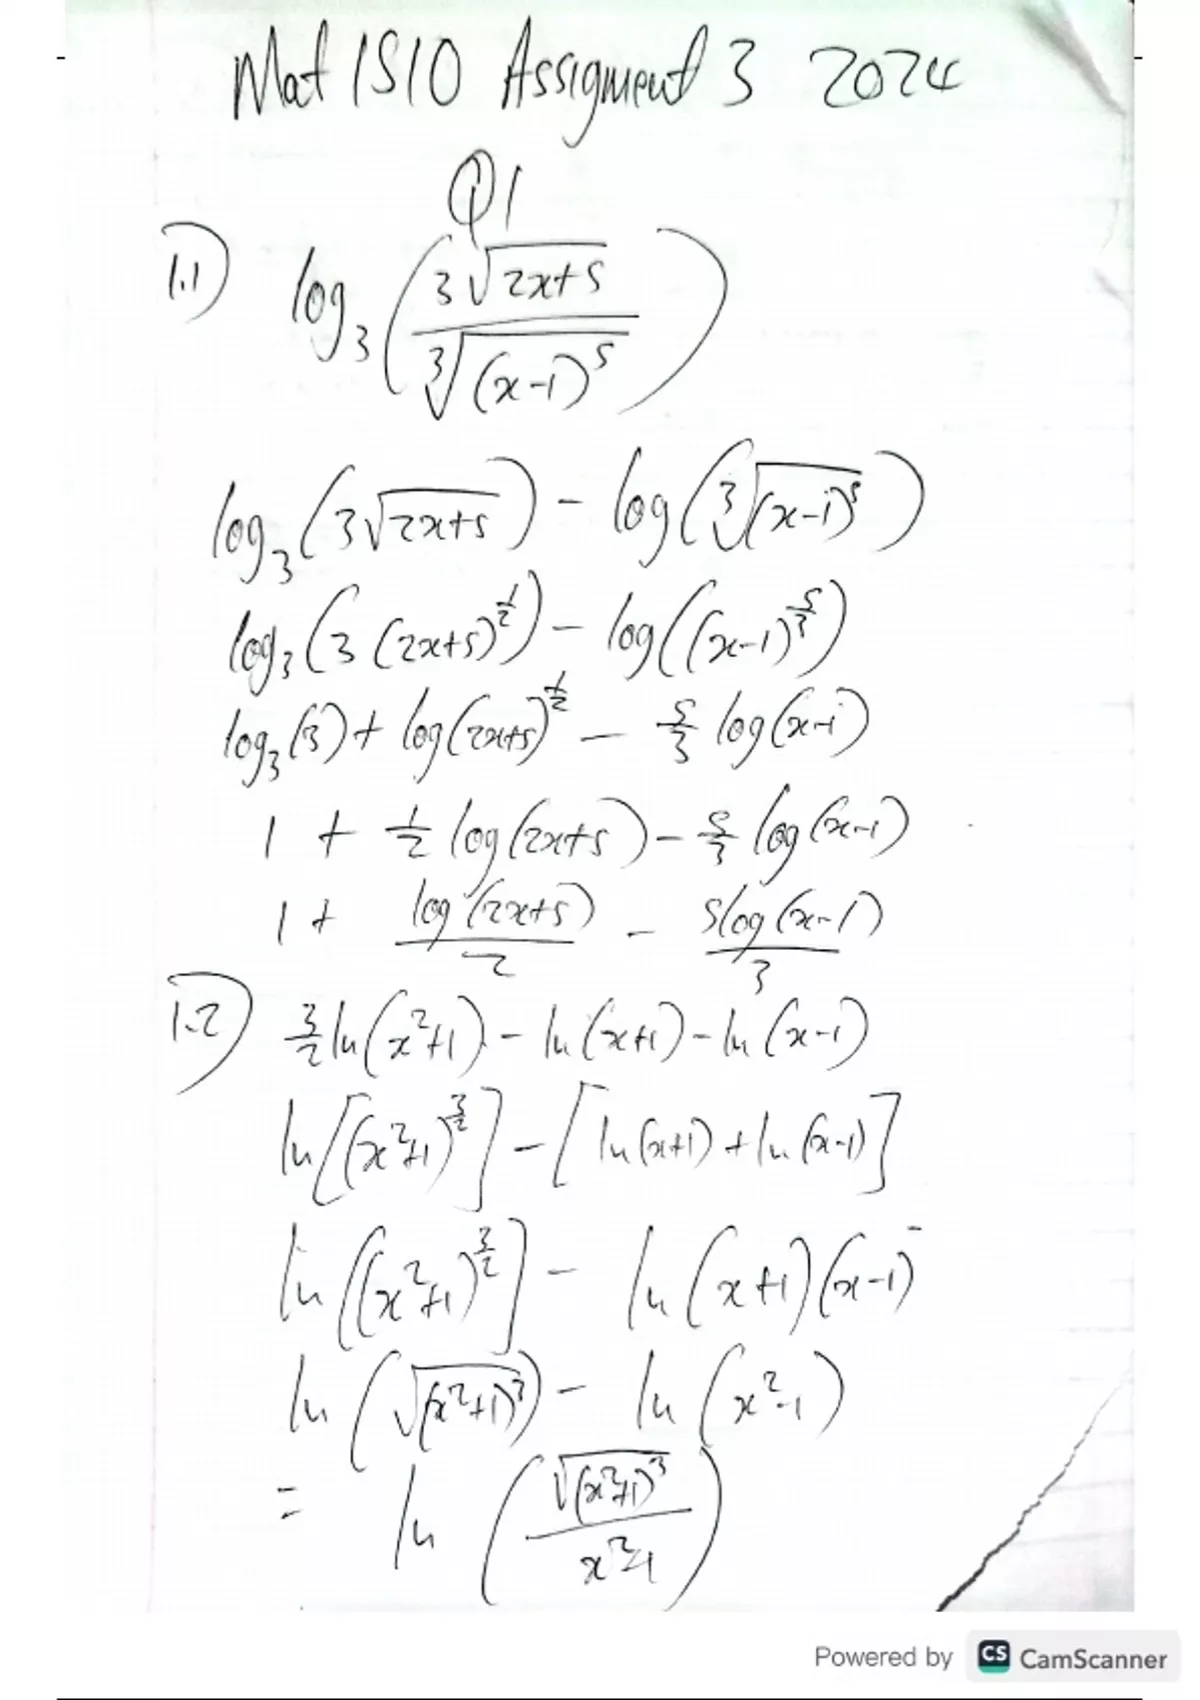 Mat 1510 Assigment 3 2024
Q1
1.1) log₃(3√(2x+5) / ∛((x-1)⁵))
log₃(3√(2x+5)) - log(∛((x-1)⁵))
log₃(3(2x+5)^(1/2)) - log((x-1)^(5/3))
log₃(3) + log(2x+5)^(1/2) - 5/3 log(x-1)
1 + 1/2 log(2x+5) - 5/3 log(x-1)
1 + log(2x+5)/2 - 5log(x-1)/3
1.2) 3/2 ln(x²+1) - ln(x+1) - ln(x-1)
ln[(x²+1)^(3/2)] - [ln(x+1) + ln(x-1)]
ln((x²+1)^(3/2)] - ln(x+1)(x-1)
ln(√((x²+1)³)) - ln(x²-1)
= ln(√((x²+1)³) / x²-1)
Powered by CS CamScanner